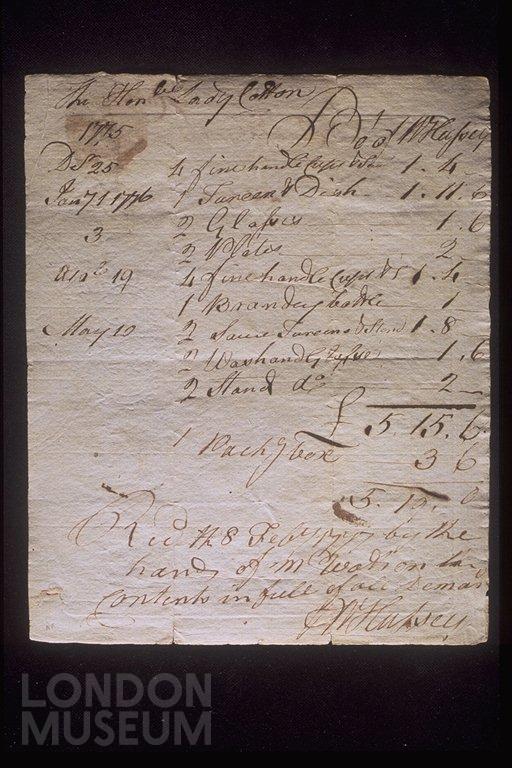 The Hon.ble Lady Cotton
1775 Do of W Hussey
Dr 25 4 fine handle Cups & 1 . 4
Jany 1 1776 1 Tureen & Dish 1 . 11 . 6
3 2 Glasses 1 . 6
2 Plates 2
19 4 fine handle Cups & 1 . 4
1 Brandy bottle 1
May 10 2 Sauce Tureens & Stand 1 . 8
2 Washand Glasses 1 . 6
2 Stand do 2
£ 5 . 15 . 6
1 Pack g box 3 6
5 . 19 . 0
Rec'd the 8 by the
hands of Mr Watson the
Contents in full of all Deman
W Hussey
LONDON
MUSEUM